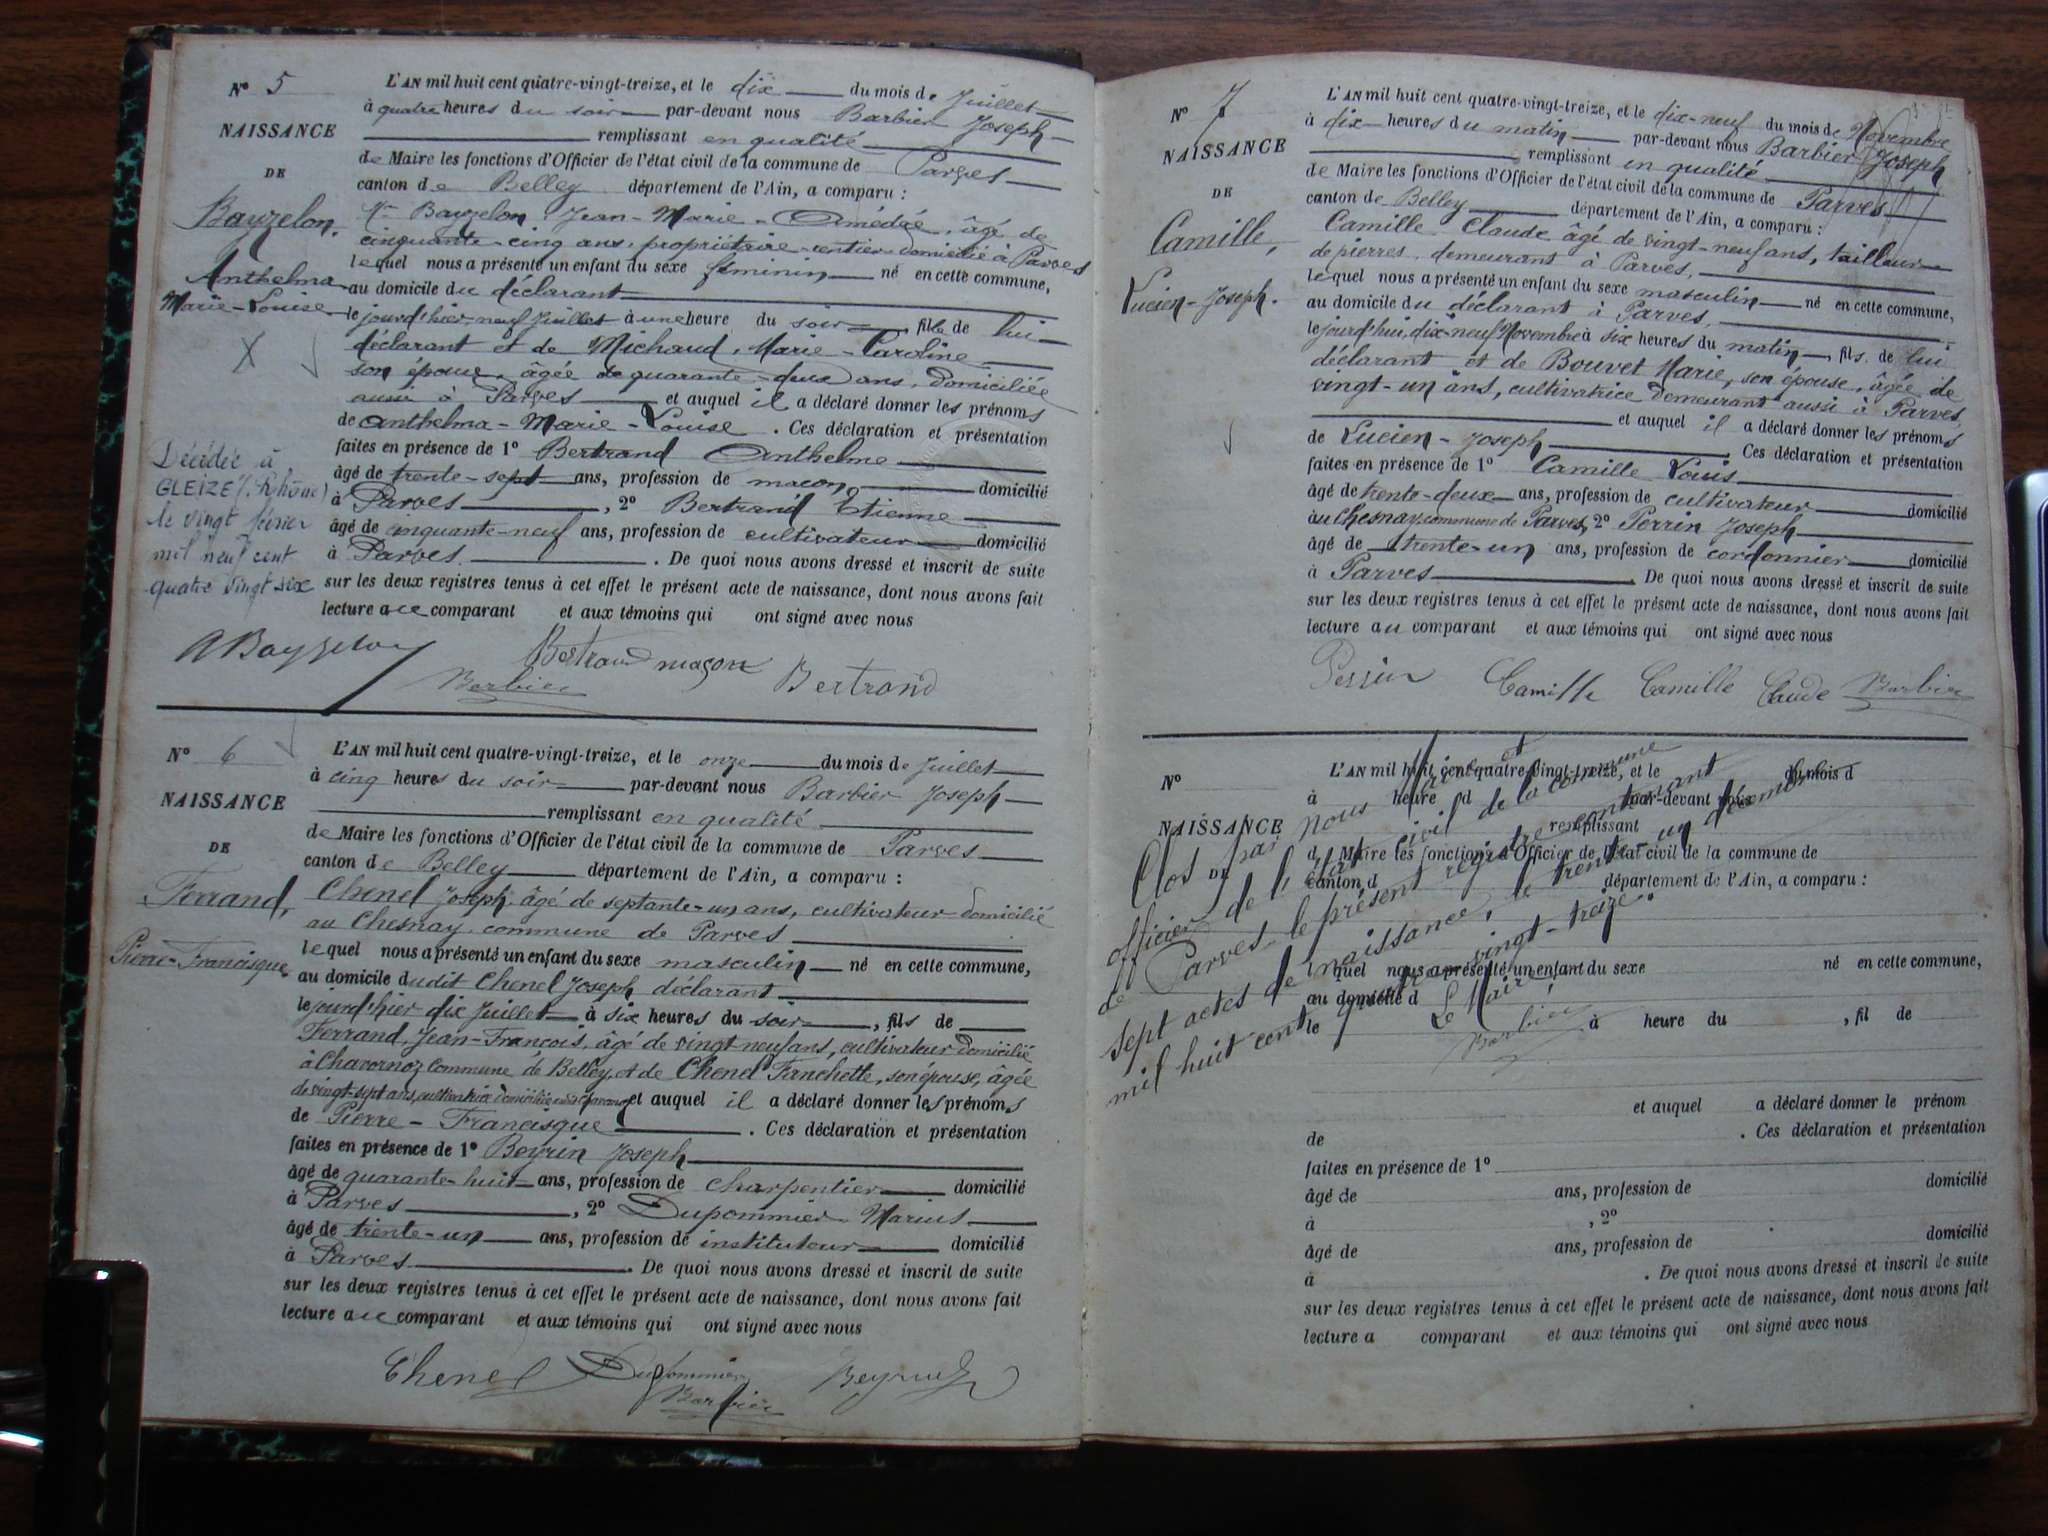 N° 5
NAISSANCE
DE
Bauzelon,
Anthelma-
Marie-Louise
X
Décédée à
GLEIZE (Rhône)
le vingt février
mil neuf cent
quatre vingt six
L'AN mil huit cent quatre-vingt-treize, et le dix du mois de Juillet
à quatre heures du soir par-devant nous Barbier Joseph
remplissant en qualité
de Maire les fonctions d'Officier de l'état civil de la commune de Parves
canton de Belley département de l'Ain, a comparu :
Mr Bauzelon Jean-Marie-Amédée, âgé de
cinquante-cinq ans, propriétaire-rentier domicilié à Parves
lequel nous a présenté un enfant du sexe féminin né en cette commune,
au domicile du déclarant
le jourd'hier, neuf Juillet à une heure du soir, fille de lui
déclarant et de Michaud, Marie-Caroline
son épouse, âgée de quarante-deux ans, domiciliée
aussi à Parves et auquel il a déclaré donner les prénoms
de Anthelma-Marie-Louise. Ces déclaration et présentation
faites en présence de 1° Bertrand Anthelme
âgé de trente-sept ans, profession de maçon domicilié
à Parves, 2° Bertrand Etienne
âgé de cinquante-neuf ans, profession de cultivateur domicilié
à Parves. De quoi nous avons dressé et inscrit de suite
sur les deux registres tenus à cet effet le présent acte de naissance, dont nous avons fait
lecture au comparant et aux témoins qui ont signé avec nous
ABauzelon Bertrand maçon Bertrand
Barbier
N° 6
NAISSANCE
DE
Ferrand,
Pierre-Francisque
L'AN mil huit cent quatre-vingt-treize, et le onze du mois de Juillet
à cinq heures du soir par-devant nous Barbier Joseph
remplissant en qualité
de Maire les fonctions d'Officier de l'état civil de la commune de Parves
canton de Belley département de l'Ain, a comparu :
Chenel Joseph, âgé de septante-un ans, cultivateur domicilié
au Chesnay, commune de Parves
lequel nous a présenté un enfant du sexe masculin né en cette commune,
au domicile dudit Chenel Joseph déclarant
le jourd'hier dix Juillet à six heures du soir, fils de
Ferrand, Jean-François, âgé de vingt-neuf ans, cultivateur domicilié
à Chavornoz commune de Belley, et de Chenel Fanchette, son épouse, âgée
de vingt-sept ans, cultivatrice domiciliée et auquel il a déclaré donner les prénoms
de Pierre-Francisque. Ces déclaration et présentation
faites en présence de 1° Beyrin Joseph
âgé de quarante-huit ans, profession de charpentier domicilié
à Parves, 2° Dupommier Marius
âgé de trente-un ans, profession de instituteur domicilié
à Parves. De quoi nous avons dressé et inscrit de suite
sur les deux registres tenus à cet effet le présent acte de naissance, dont nous avons fait
lecture au comparant et aux témoins qui ont signé avec nous
Chenel Dupommier Beyrin
Barbier
N° 7
NAISSANCE
DE
Camille,
Lucien-Joseph.
L'AN mil huit cent quatre-vingt-treize, et le dix-neuf du mois de Novembre
à dix heures du matin par-devant nous Barbier Joseph
remplissant en qualité
de Maire les fonctions d'Officier de l'état civil de la commune de Parves
canton de Belley département de l'Ain, a comparu :
Camille Claude âgé de vingt-neuf ans, tailleur
de pierres, demeurant à Parves,
lequel nous a présenté un enfant du sexe masculin né en cette commune,
au domicile du déclarant à Parves,
le jourd'hui, dix-neuf Novembre à six heures du matin, fils de lui
déclarant et de Bouvet Marie, son épouse, âgée de
vingt-un ans, cultivatrice demeurant aussi à Parves,
et auquel il a déclaré donner les prénoms
de Lucien-Joseph. Ces déclaration et présentation
faites en présence de 1° Camille Louis
âgé de trente-deux ans, profession de cultivateur domicilié
au Chesnay, commune de Parves, 2° Perrin Joseph
âgé de trente-un ans, profession de cordonnier domicilié
à Parves. De quoi nous avons dressé et inscrit de suite
sur les deux registres tenus à cet effet le présent acte de naissance, dont nous avons fait
lecture au comparant et aux témoins qui ont signé avec nous
Perrin Camille Camille Claude Barbier
N°
NAISSANCE
DE
L'AN mil huit cent quatre-vingt-treize, et le du mois d
à heure d par-devant nous
remplissant
d Maire les fonctions d'Officier de l'état civil de la commune de
canton d département de l'Ain, a comparu :
l quel nous a présenté un enfant du sexe né en cette commune,
au domicile d
le à heure du , fil de
et auquel a déclaré donner le prénom
de . Ces déclaration et présentation
faites en présence de 1°
âgé de ans, profession de domicilié
à , 2°
âgé de ans, profession de domicilié
à . De quoi nous avons dressé et inscrit de suite
sur les deux registres tenus à cet effet le présent acte de naissance, dont nous avons fait
lecture a comparant et aux témoins qui ont signé avec nous
Clos par nous Maire et
officier de l'état civil de la commune
de Parves le présent registre contenant
sept actes de naissance, le trente-un décembre
mil huit cent quatre-vingt-treize.
Le Maire,
Barbier